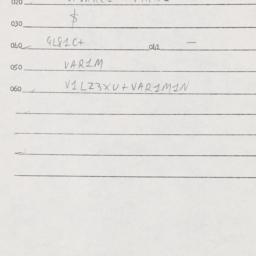 020
030 $
040 GL81C+ 041 —
050 VAR1M
060 V1LZ3XU+VAR1M1N